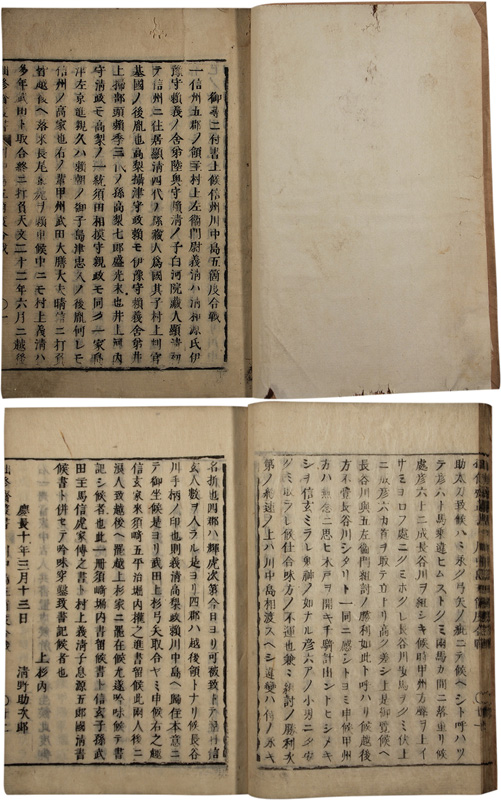 御尋ニ付書上候信州川中島五箇度合戰
一信州五郡ノ領主村上左衞門尉義清ハ清和源氏伊
豫守頼義ノ舍弟陸奥守頼清ノ子白河院藏人顯清初
テ信州ニ住居顯清四代ノ孫藏人爲國其子村上判官
基國ノ後胤也高梨攝津守政頼モ伊豫守頼義舍弟井
上掃部頭頼季三代ノ孫高梨七郎盛光末也井上河内
守清政モ高梨ノ一統須田相摸守親政モ同ク一家島
津左京進親久ハ頼朝ノ御子島津忠久ノ後胤何レモ
信州ノ高家也右ノ輩甲州武田大膳大夫晴信ニ打負
皆越後ヘ落來長尾ヲ頼申候中ニモ村上義清ハ
多年武田ト取合終ニ打負天文二十二年六月ニ越後
助太刀致候ハミ永ク弓矢ノ瑕ニテ候ヘシト呼ハツ
テ彦六ト馬乗違ヒムストクミ兩馬カ間ニ落重リ候
處彦六上ニ成長谷川ヲ組シキ候時甲州方聲ヲ上イ
サミヨロフ處ニクミホクレ長谷川安馬ヲクミ伏上
ニ成彦六カ首ヲ取テ立上リ高ク差シ上是御覽候ヘ
長谷川與五左衞門組討ノ勝利如此ト呼ハリ候越後
方不審長谷川シタリト一同ニ感シトヨミ申候甲州
方ハ無念ニ思ヒ木戸ヲ開キ千騎計出ントヒシメキ
シヲ信玄ミラレ鬼神ノ如ナル彦六アノ小男ニタヤ
クミ取ラレ候仕合味方ノ不運也兼ミ組討ノ勝利次
第ノ約速ノ上ハ川中島相渡スヘシ違變ハ侍ノ永キ
名折也四郡ハ輝虎次第今日ヨリ可被致トテ
玄人數ヲ入ラレ是ヨリ四郡ハ越後領トナリ候長谷
川手柄ノ印也則義清高梨政頼川中島ヘ歸住本意ニ
テ御坐候是ヨリ武田上杉弓矢取合ヤミ申候右之趣
信玄家來須崎五平治堀内權之進書留候此兩人後ニ
浪人致越後ヘ罷越上杉家ニ罷在候尤遂吟味候テ書
記シ候者也此一冊須崎堀内書留候書ト信玄子孫武
田主馬信虎家傳之書ト村上義清子息源五郎國清書
候書ト併セテ吟味穿鑿致書記候者也
慶長十年三月十三日
上杉内
清野助次郎